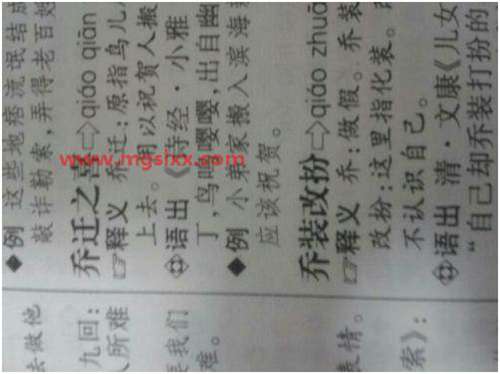 去做他
九回：
人所难
我们
难。
表情。
索》：
◆例 这些地痞流氓结成
敲诈勒索，弄得老百姓
乔迁之喜⇨qiáo qiān
☞释义 乔迁：原指鸟儿
上去。用以祝贺人搬
语出 《诗经·小雅
丁，鸟鸣嘤嘤，出自幽
◆例 小弟家搬入滨海
应该祝贺。
乔装改扮⇨qiáo zhuā
☞释义 乔：做假。乔装
改扮：这里指化装。
不认识自己。
语出 清·文康《儿女
“自己却乔装打扮的
www.mgsixx.com